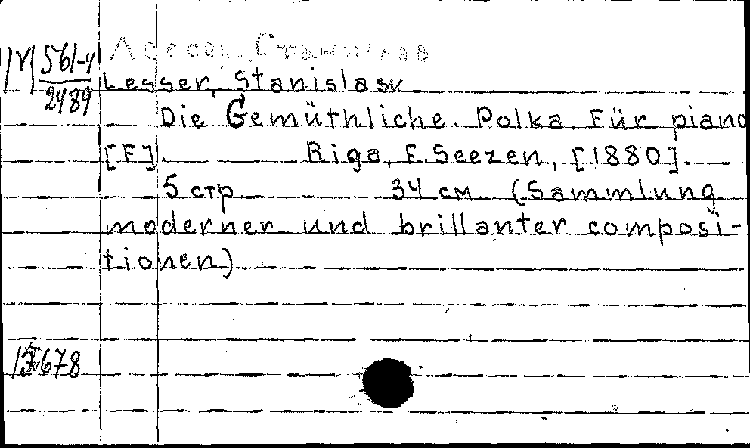 Лессер, Станислав
М 561-4
2489
Lesser, Stanislasv
Die Gemüthliche. Polka. Für piano
[F] Riga, E. Seezen, [1880].
5 стр 34 см (Sammlung
moderner und brillanter composi-
tionen)